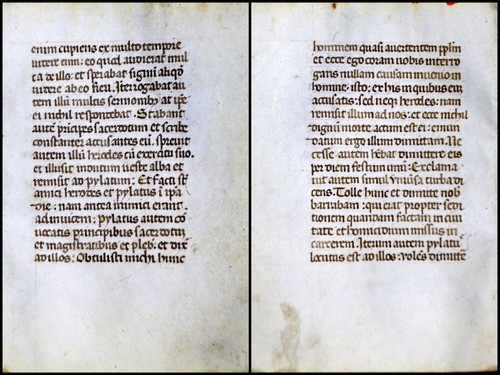 enim cupiens ex multo tempore
videre eum: eo quod audierat mul
ta de illo: et sperabat signū aliqđ
videre ab eo fieri. Iterrogabat au
tem illū multis sermonibȝ at ipe
ei nichil respondebat. Stabant
autē prīcipes sacerdotum et scribe
constanter accusantes eū. spreuit
autem illū herodes cū exercitu suo.
et illusit indutum veste alba et
remisit ad pylatum. Et facti st̄
amici herodes et pylatus ī ipa
die: nam antea inimici erant
adinuicem: pylatus autem cō
uocatis principibus sacerdotū
et magistratibus et pleb. et dix̄
ad illos: Obtulisti michi hunc
hominem quasi auertentem pplm
et ecce ego coram vobis interro
gans nullam causam inuenio in
homine isto: ex his in quibus eū
accusatis: sed neqȝ herodes: nam
remisit illum ad nos: et ecce nichil
dignū morte actum est ei: emun
datum ergo illum dimittam. Ne
cesse autem hēbat dimittere eis
per diem festum unū: Exclama
uit autem simul vniūsa turba di
cens: Tolle hunc et dimitte nob
baraban: qui erat propter sedi
tionem quandam factam in ciui
tate et homicidium missus in
carcerem. Iterum autem pylatꝰ
locutus est ad illos: volēs dimitte